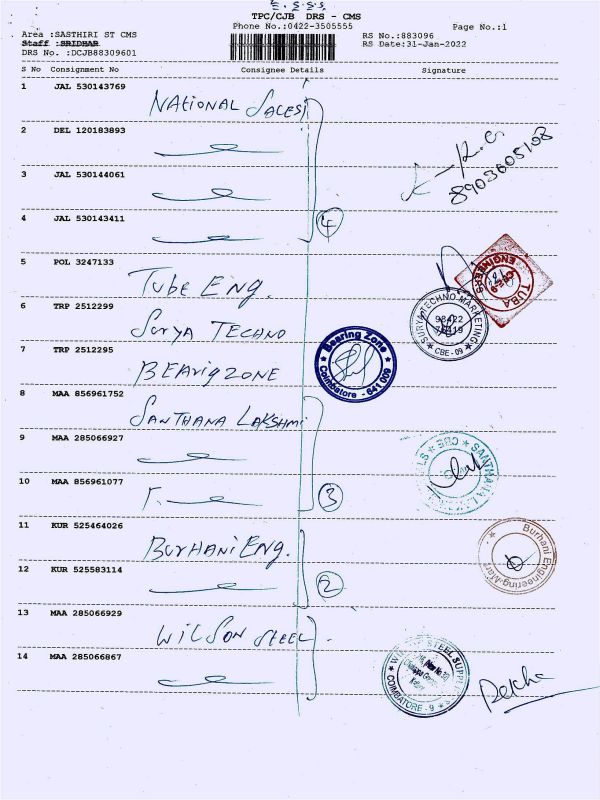 E.S.S.S.
TPC/CJB DRS - CMS
Phone No.:0422-3505555 Page No.:1
Area :SASTHIRI ST CMS RS No.:883096
Staff :SRIDHAR RS Date:31-Jan-2022
DRS No. :DCJB88309601
S No Consignment No Consignee Details Signature
1 JAL 530143769 NATIONAL SALES
2 DEL 120183893
3 JAL 530144061 8903605108
4 JAL 530143411 4
5 POL 3247133 Tube ENG.
TUBA ENGINEERS
6 TRP 2512299 Surya TECHNO
SURYA TECHNO MARKETING CBE-09
7 TRP 2512295 BEArigZONE
Bearing Zone Coimbatore - 641 009
8 MAA 856961752 SANTHANA LAKSHMI
9 MAA 285066927
SANTHANA CBE
10 MAA 856961077 3
11 KUR 525464026 BURHANI ENG.
Burhani Engineering Mart
12 KUR 525583114 2
13 MAA 285066929 WILSON STEEL
14 MAA 285066867
STEEL SUPPL COIMBATORE - 9